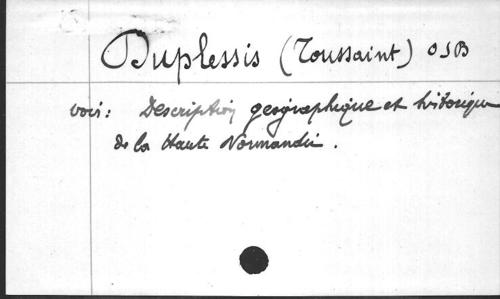 Duplessis (Toussaint) OSB
voir: Description géographique et historique
de la Haute Normandie.